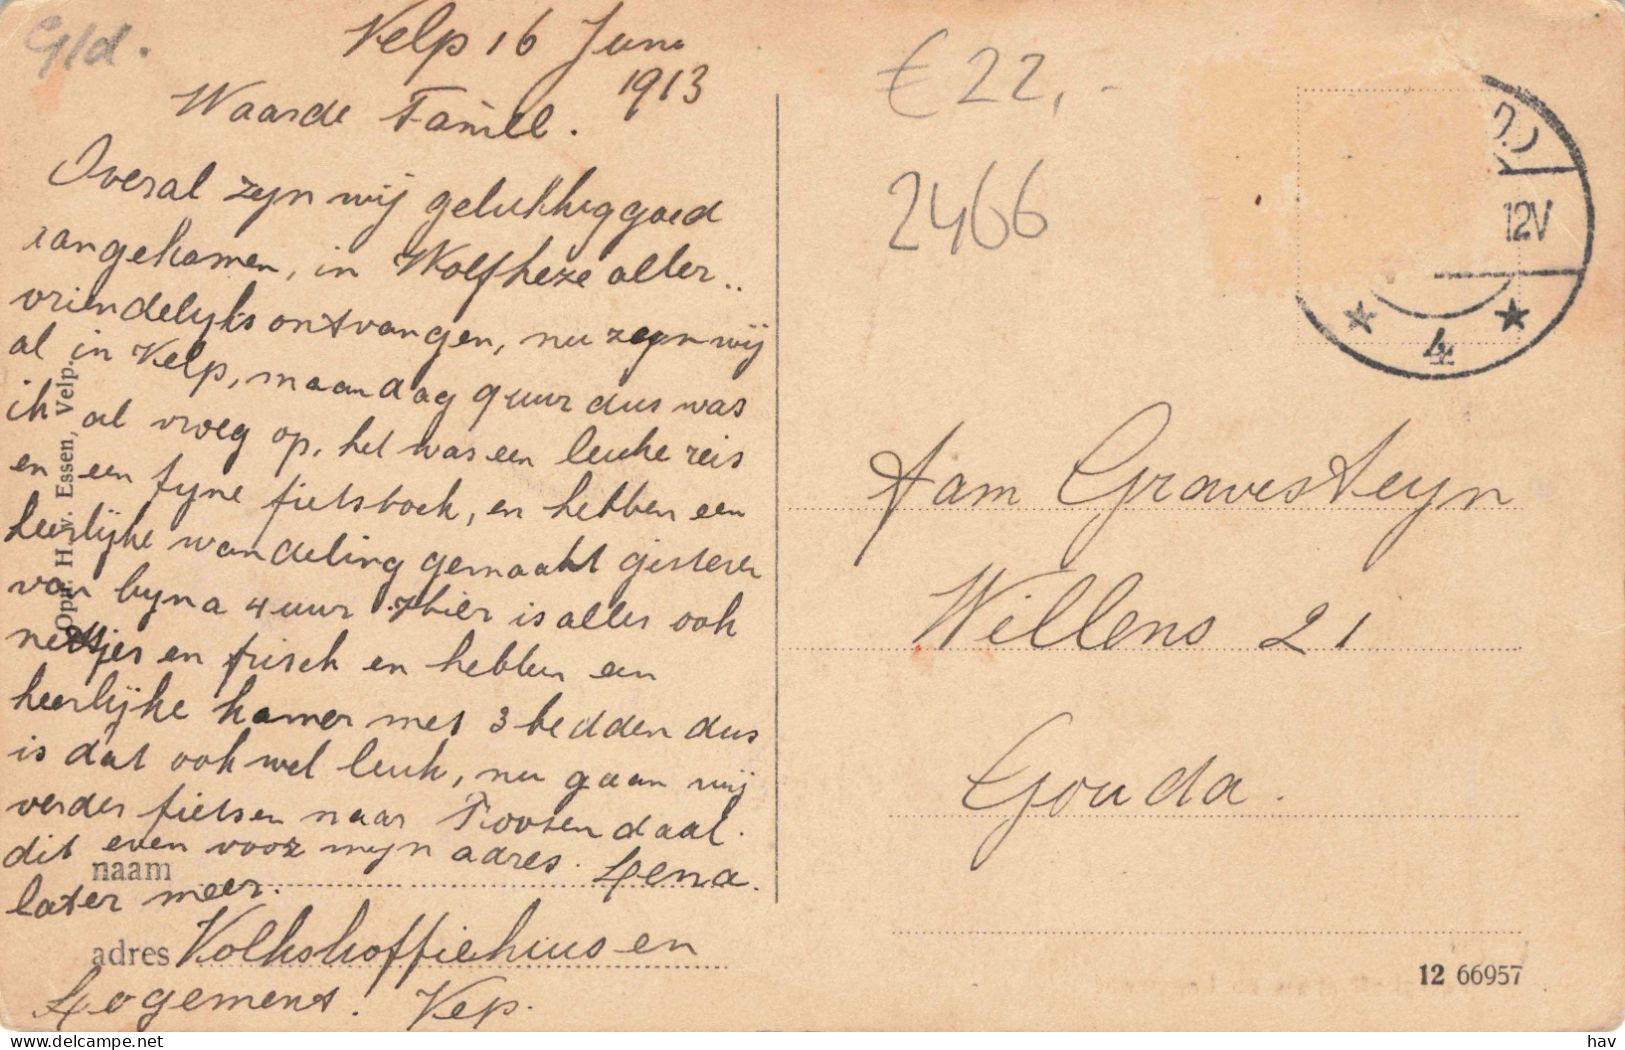 Gld.
Velp 16 Juni
1913
Waarde Famiel.
Overal zyn wij gelukkig goed
aangekomen, in Wolfheze aller..
vriendelyks ontvangen, nu zyn wij
al in Velp, maandag 9 uur dus was
ik al vroeg op, het was een leuke reis
en een fyne fietstoch, en hebben een
heerlijke wandeling gemaakt gisteren
van byna 4 uur. hier is alles ook
netjes en frisch en hebben een
heerlijke kamer met 3 bedden dus
is dat ook wel leuk, nu gaan wij
verder fietsen naar Roosendaal.
dit even voor myn adres. Lena.
later meer.
naam
adres Volkskoffiehuis en
Logement! Velp.
Opn. H. v. Essen, Velp.
€ 22,-
2466
12V
4
Aam Gravesteyn
Willens 21
Gouda.
12 66957
hav